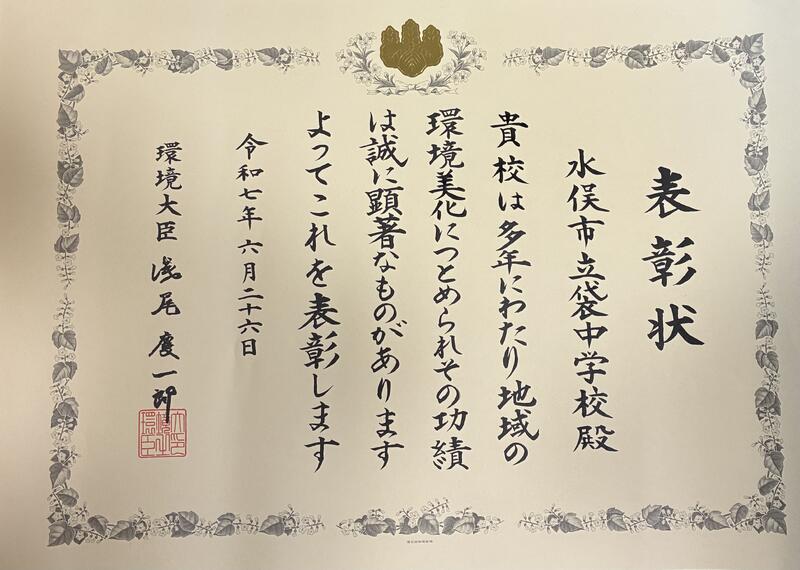 表彰状
水俣市立袋中学校殿
貴校は多年にわたり地域の
環境美化につとめられその功績
は誠に顕著なものがあります
よってこれを表彰します
令和七年六月二十六日
環境大臣 浅尾慶一郎